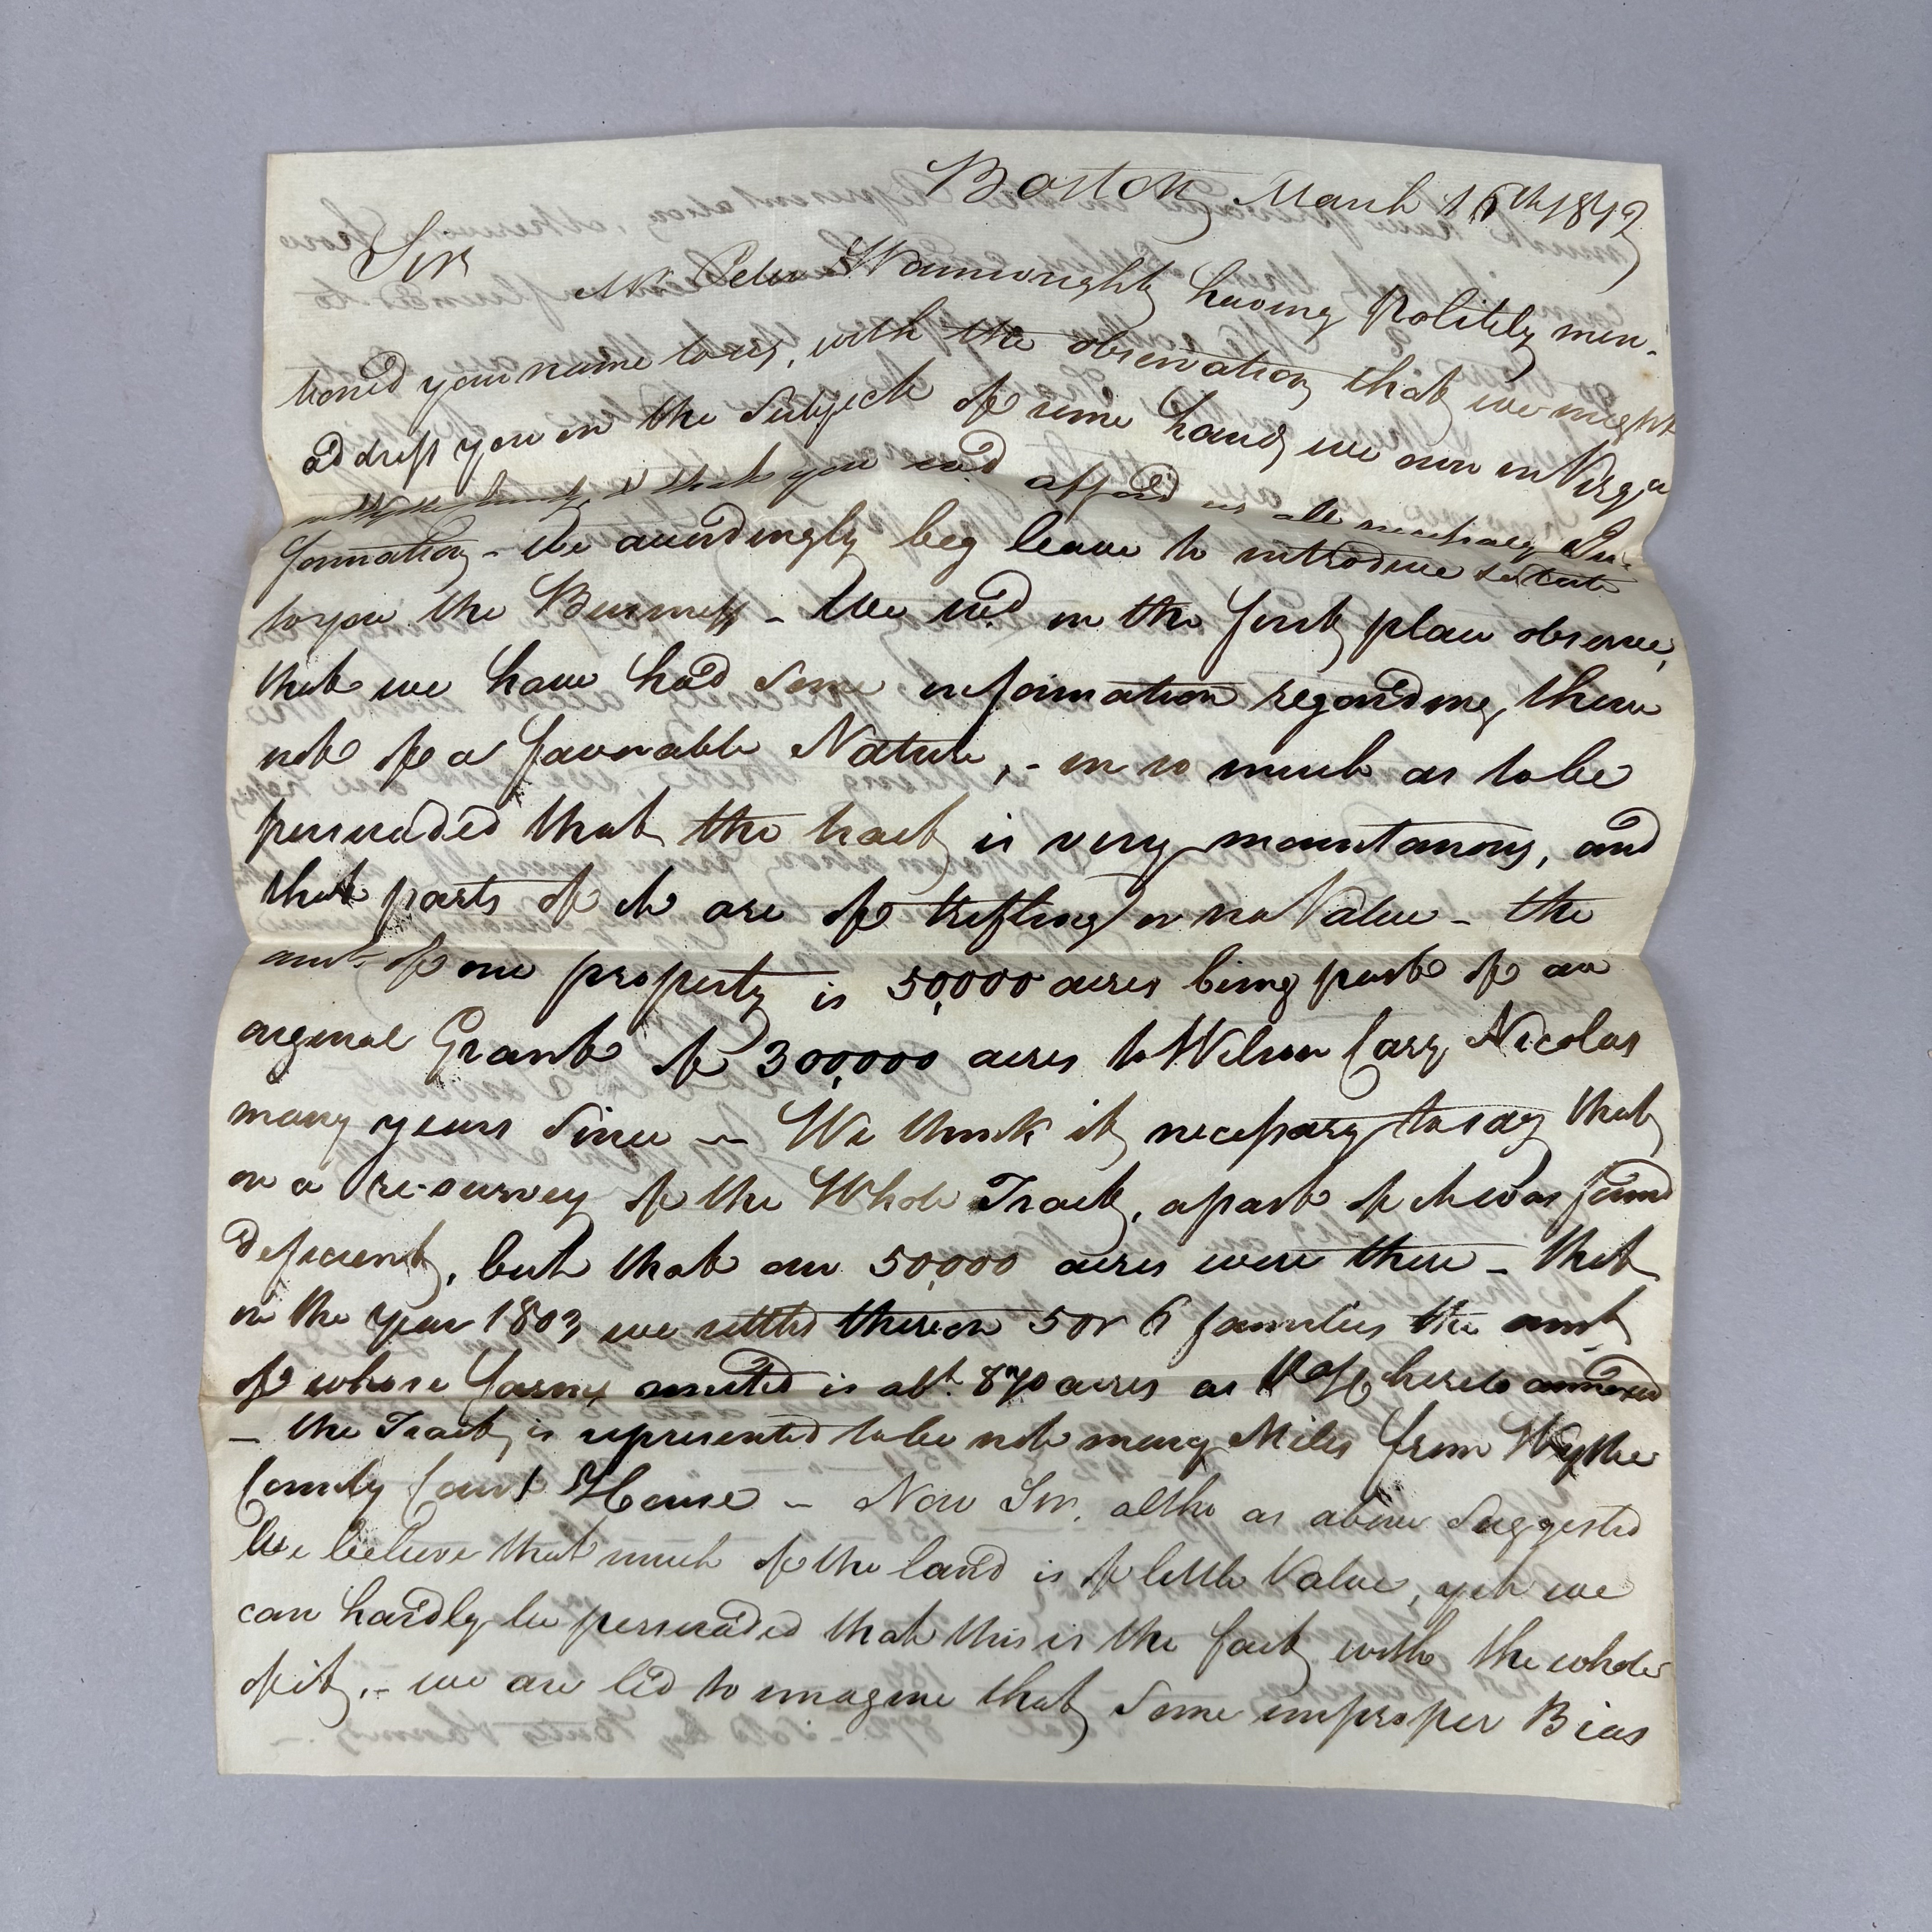 Boston March 16th 1842
Sir
Mr Peter Wainwright having Politely men-
tioned your name to us, with the observation that we might
address you on the Subject of some Land we own in Virga
& that you wod afford us all necessary In-
formation - We accordingly beg leave to introduce
to you the Business - We wod in the first place observe,
that we have had some information regarding them
not of a favorable Nature, - in so much as to be
persuaded that the tract is very mountanous, and
that parts of it are of trifling or no Value - the
amt of our property is 50,000 acres being part of an
orginal Grant of 300,000 acres to Wilson Cary Nicolas
many years Since - We think it necessary to say that
on a re-survey of the Whole Tract, a part of it was found
deficient, but that our 50,000 acres were there - that
in the year 1803 we settled thereon 5 or 6 families the amt
of whose farms is abt 870 acres as hereto annexed
- the Tract is represented to be not many Miles from Wythe
County Court House - Now Sir, altho as above Suggested
We believe that much of the land is of little Value, yet we
can hardly be persuaded that this is the fact with the whole
of it, - we are led to imagine that Some improper Bias